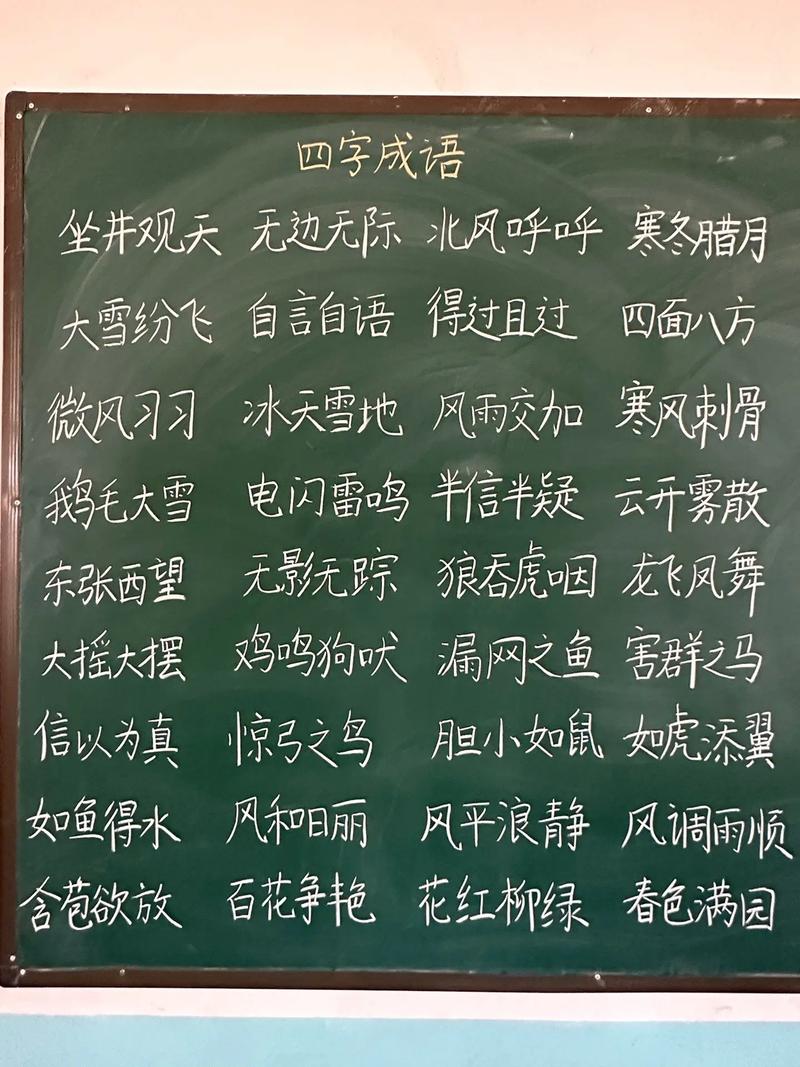 四字成语
坐井观天 无边无际 北风呼呼 寒冬腊月
大雪纷飞 自言自语 得过且过 四面八方
微风习习 冰天雪地 风雨交加 寒风刺骨
鹅毛大雪 电闪雷鸣 半信半疑 云开雾散
东张西望 无影无踪 狼吞虎咽 龙飞凤舞
大摇大摆 鸡鸣狗吠 漏网之鱼 害群之马
信以为真 惊弓之鸟 胆小如鼠 如虎添翼
如鱼得水 风和日丽 风平浪静 风调雨顺
含苞欲放 百花争艳 花红柳绿 春色满园